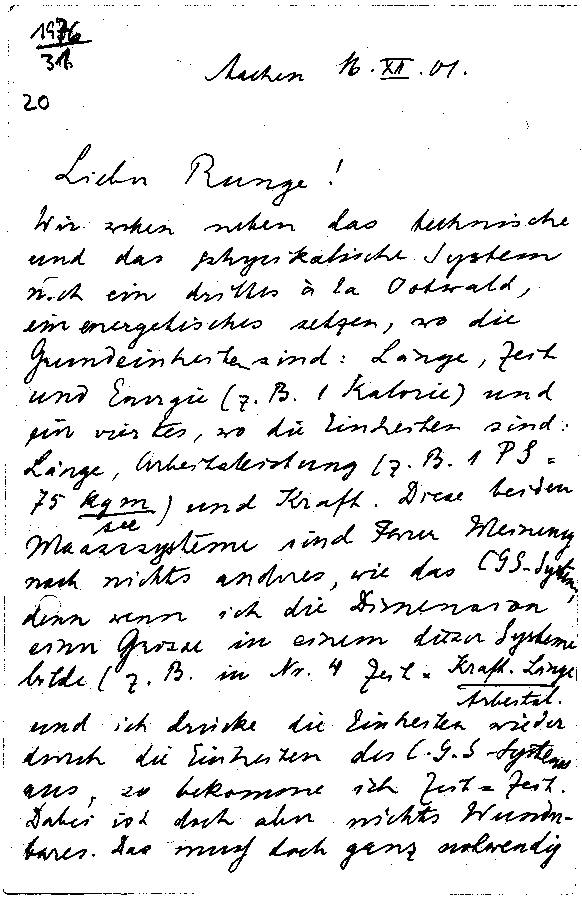 1976
31b
20
Aachen 16. XII. 01.
Lieber Runge!
Wir wollen neben das technische
und das physikalische System
noch ein drittes à la Ostwald,
ein energetisches setzen, wo die
Grundeinheiten sind: Länge, Zeit
und Energie (z. B. 1 Kalorie) und
ein viertes, wo die Einheiten sind:
Länge, Arbeitsleistung (z. B. 1 PS =
75 kgm/sec) und Kraft. Diese beiden
Maasssysteme sind Ihrer Meinung
nach nichts anderes, wie das CGS-System,
denn wenn ich die Dimension
einer Grösse in einem dieser Systeme
bilde (z. B. in Nr. 4 Zeit = Kraft. Länge/Arbeitsl.
und ich drücke die Einheiten wieder
durch die Einheiten des C.G.S-Systems
aus, so bekomme ich Zeit = Zeit.
Dabei ist doch aber nichts Wunder-
bares. Das muss doch ganz notwendig